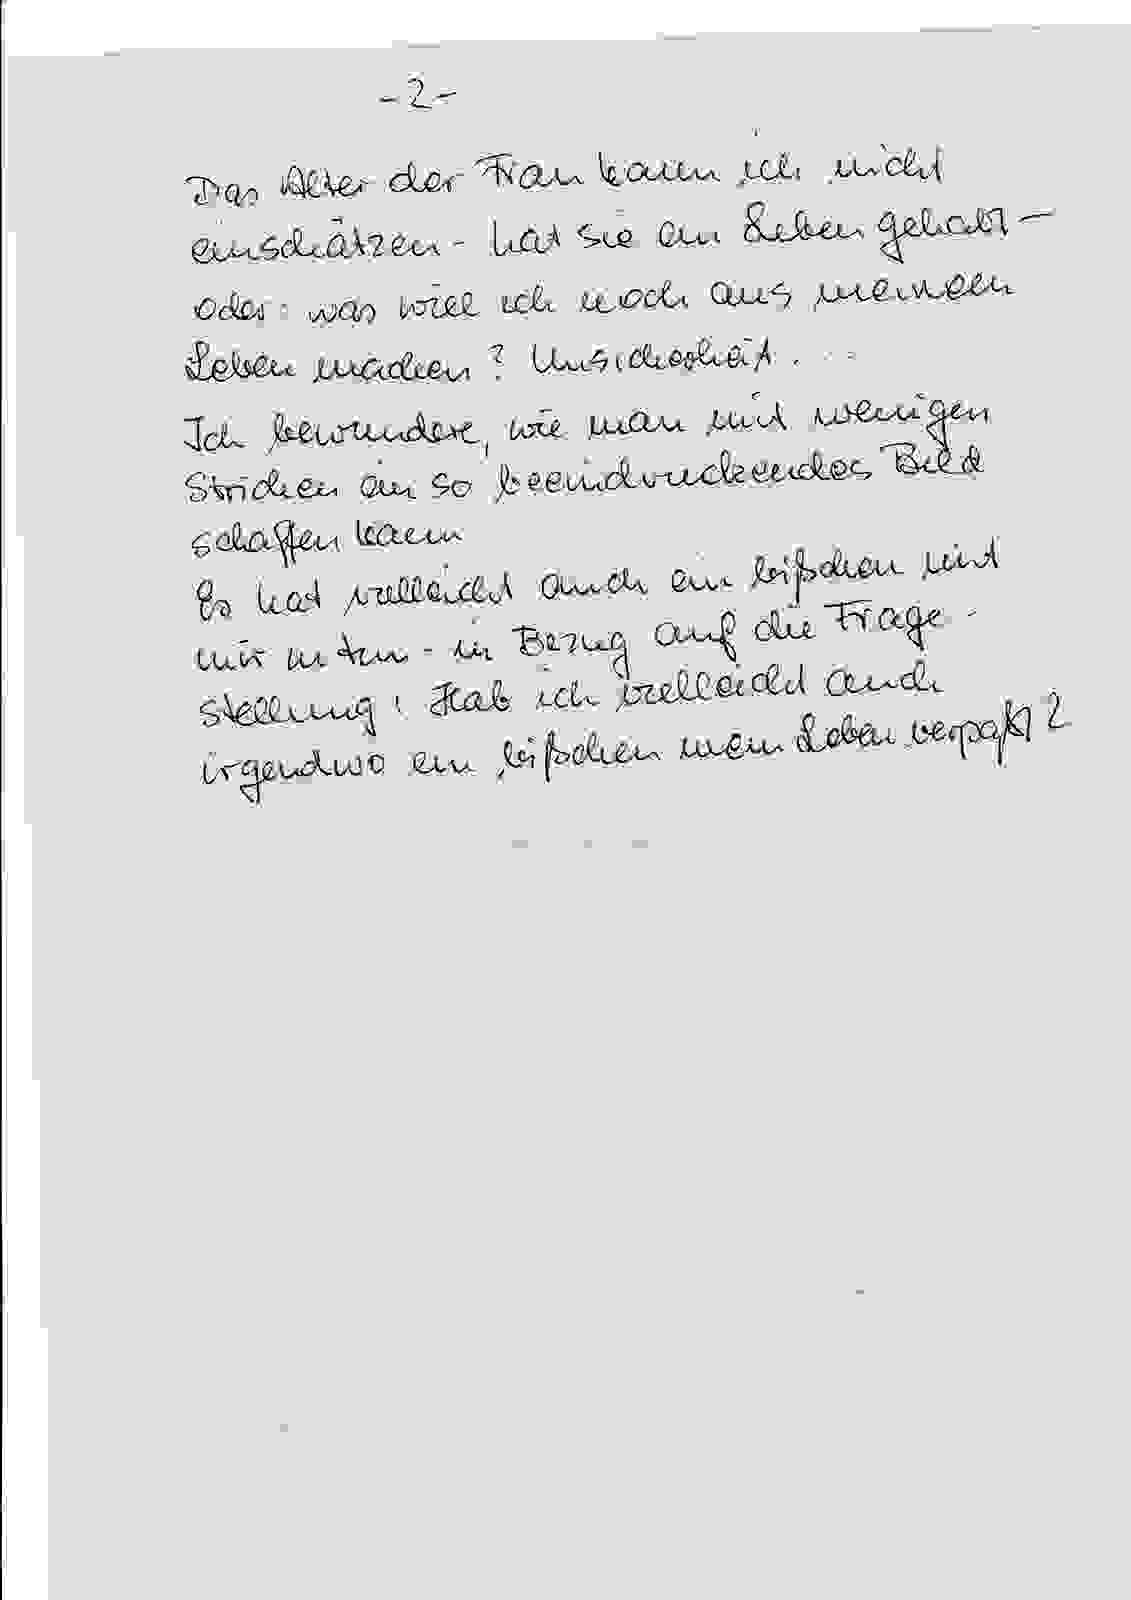 -2-
Das Alter der Frau kann ich nicht
einschätzen - hat sie ein Leben gehabt -
oder: was will ich noch aus meinem
Leben machen? Unsicherheit. ..
Ich bewundere, wie man mit wenigen
Strichen ein so beeindruckendes Bild
schaffen kann
Es hat vielleicht auch ein bißchen mit
mir zu tun - in Bezug auf die Frage-
stellung: Hab ich vielleicht auch
irgendwo ein bißchen mein Leben verpaßt?